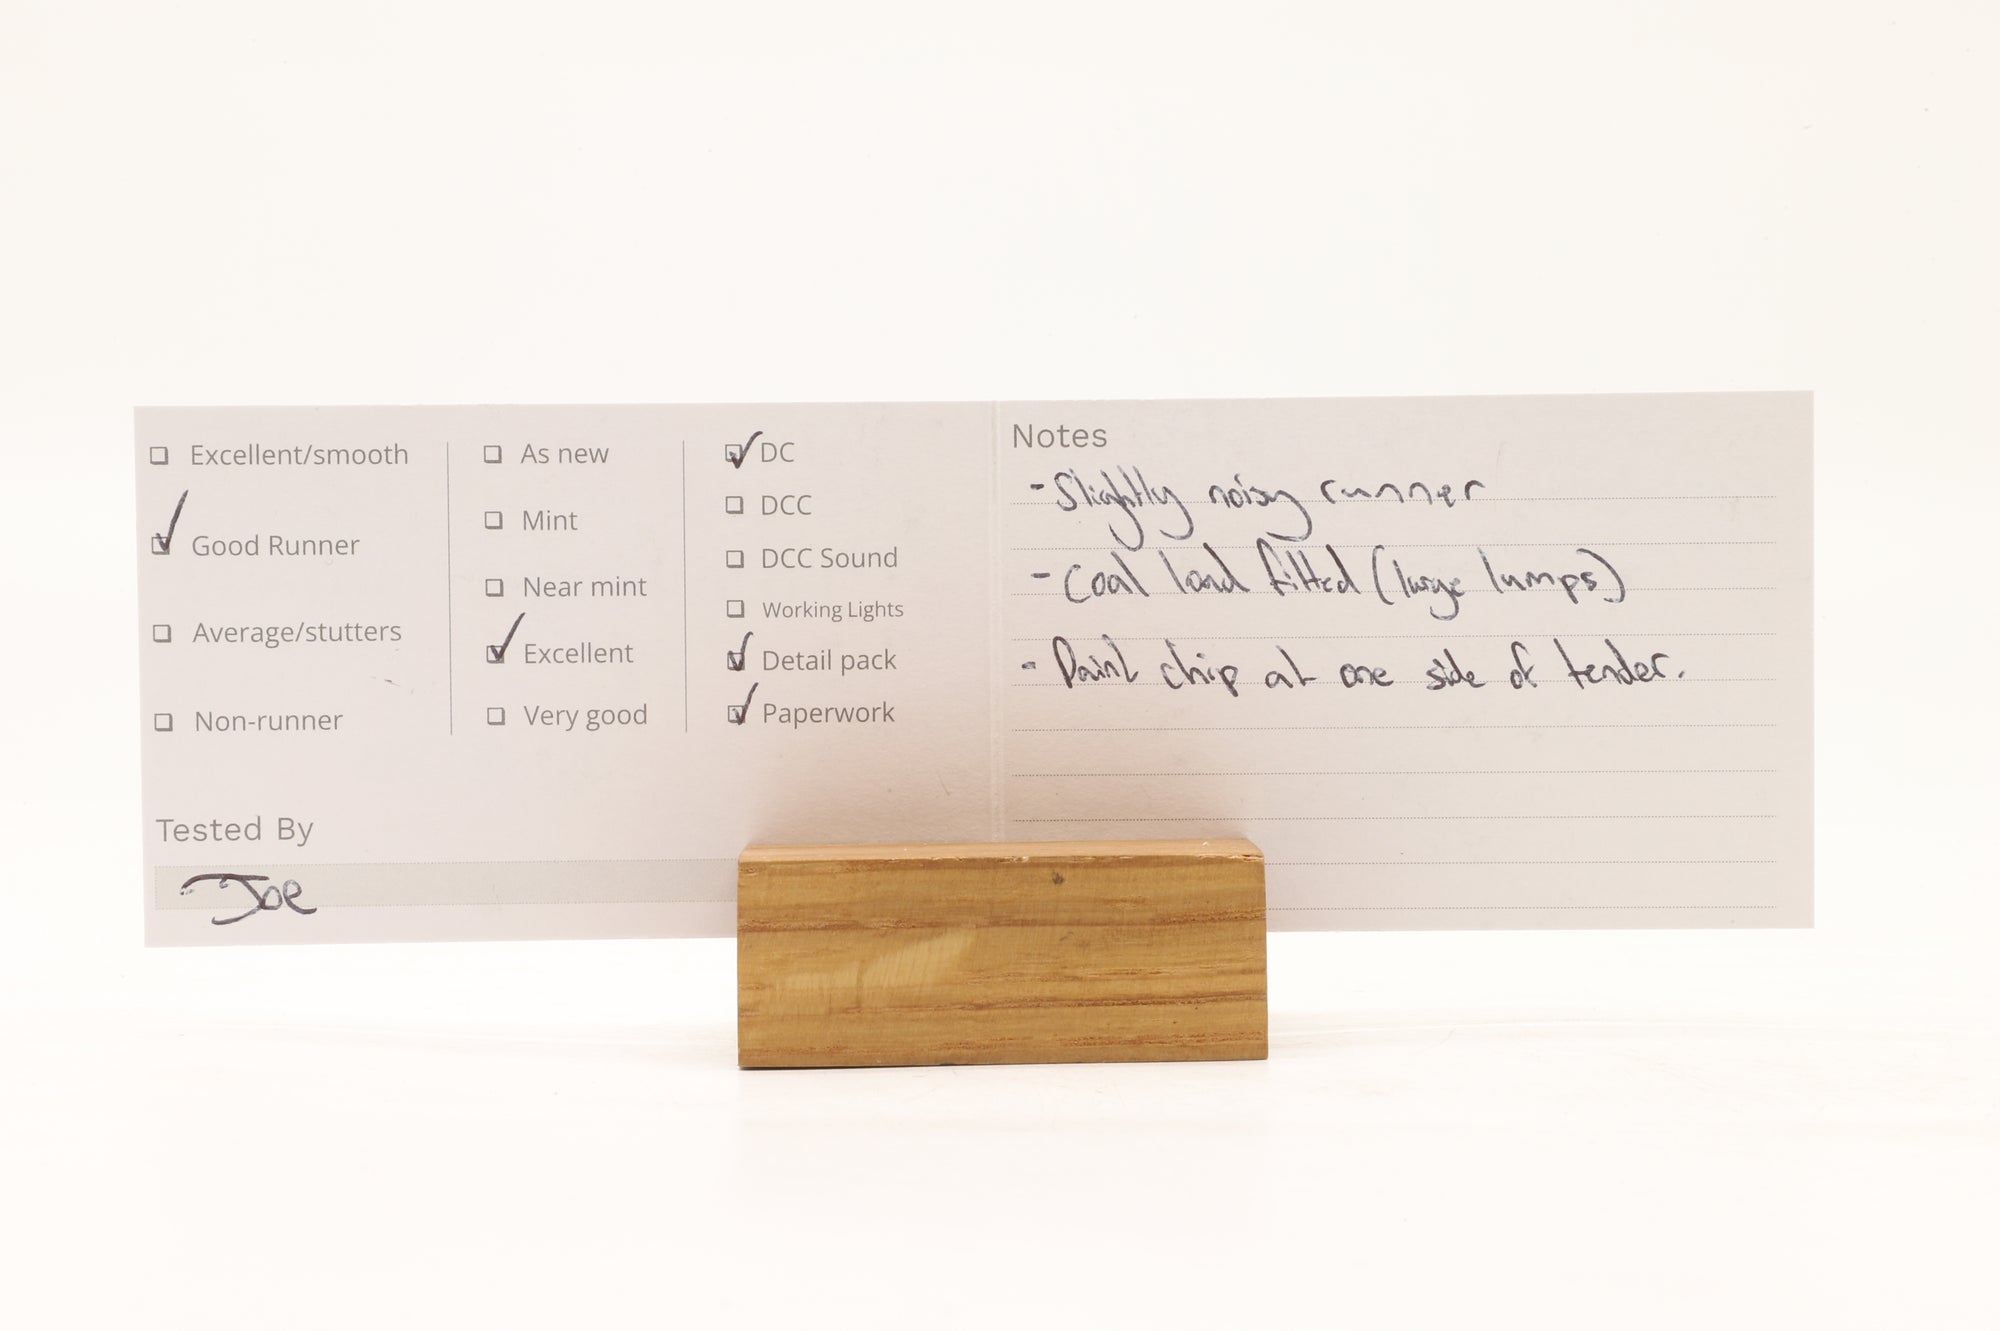 ☐ Excellent/smooth
☑ Good Runner
☐ Average/stutters
☐ Non-runner
☐ As new
☐ Mint
☐ Near mint
☑ Excellent
☐ Very good
☑ DC
☐ DCC
☐ DCC Sound
☐ Working Lights
☑ Detail pack
☑ Paperwork
Tested By
Joe
Notes
- Slightly noisy runner
- Coal load fitted (large lumps)
- Paint chip at one side of tender.